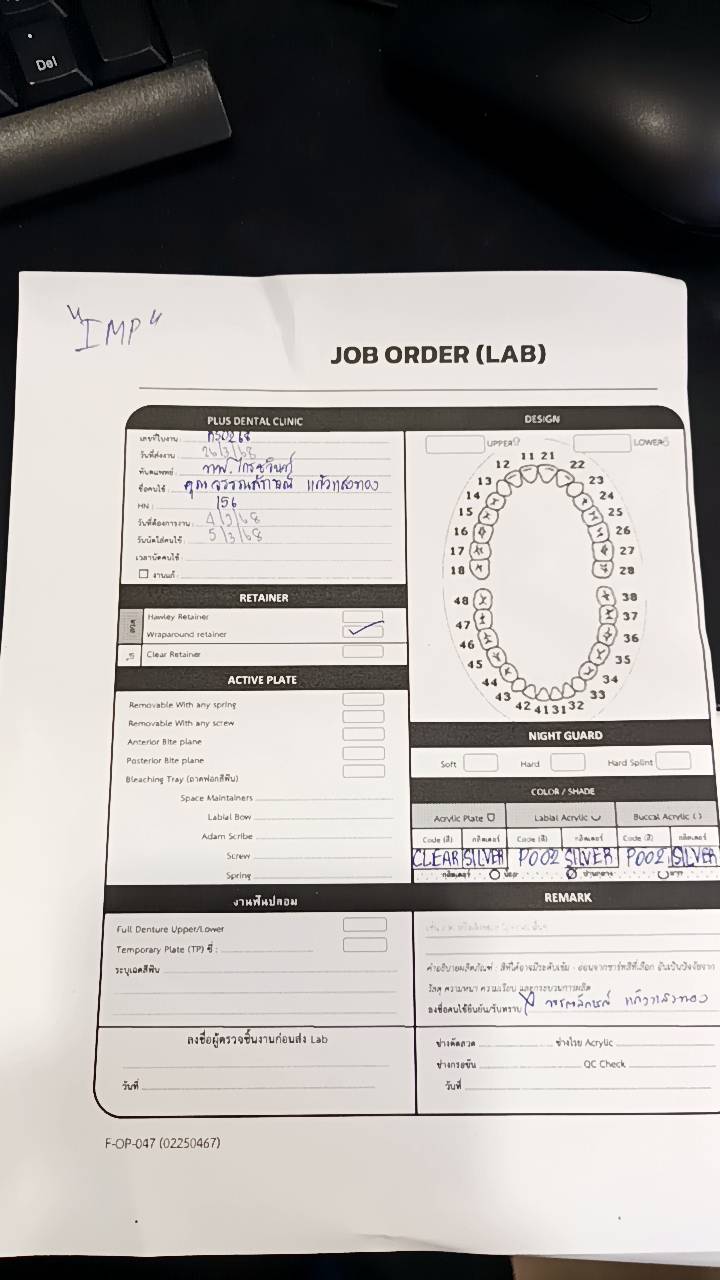 Del
"IMP"
JOB ORDER (LAB)
PLUS DENTAL CLINIC
เลขที่ใบงาน
วันที่ส่งงาน 26/2/68
ทันตแพทย์
ชื่อคนไข้ คุณ แก้วแสงทอง
HN : 156
วันที่ต้องการงาน 4/3/68
วันนัดใส่คนไข้ 5/3/68
เวลานัดคนไข้
งานแก้
RETAINER
Hawley Retainer
Wraparound retainer
Clear Retainer
ACTIVE PLATE
Removable With any spring
Removable With any screw
Anterior Bite plane
Posterior Bite plane
Bleaching Tray (ถาดฟอกสีฟัน)
Space Maintainers
Labial Bow
Adam Scribe
Screw
Spring
งานฟันปลอม
Full Denture Upper/Lower
Temporary Plate (TP) ซี่ :
ระบุเฉดสีฟัน
ลงชื่อผู้ตรวจชิ้นงานก่อนส่ง Lab
วันที่
DESIGN
UPPER
LOWER
11 21
12 22
13 23
14 24
15 25
16 26
17 27
18 28
48 38
47 37
46 36
45 35
44 34
43 33
42 41 31 32
NIGHT GUARD
Soft Hard Hard Splint
COLOR / SHADE
Acrylic Plate Labial Acrylic Buccal Acrylic ( )
Code (สี) กลิตเตอร์ Code (สี) กลิตเตอร์ Code (สี) กลิตเตอร์
CLEAR SILVER P002 SILVER P002 SILVER
กลิตเตอร์ น้อย ปานกลาง มาก
REMARK
คำอธิบายผลิตภัณฑ์ : สีที่ได้อาจมีระดับเข้ม - อ่อนจากชาร์ทสีที่เลือก อันเป็นปัจจัยจาก
วัสดุ ความหนา ความเรียบ และกระบวนการผลิต
ลงชื่อคนไข้ยืนยัน/รับทราบ แก้วแสงทอง
ช่างดัดลวด ช่างโรย Acrylic
ช่างกรอขัด QC Check
วันที่
F-OP-047 (02250467)